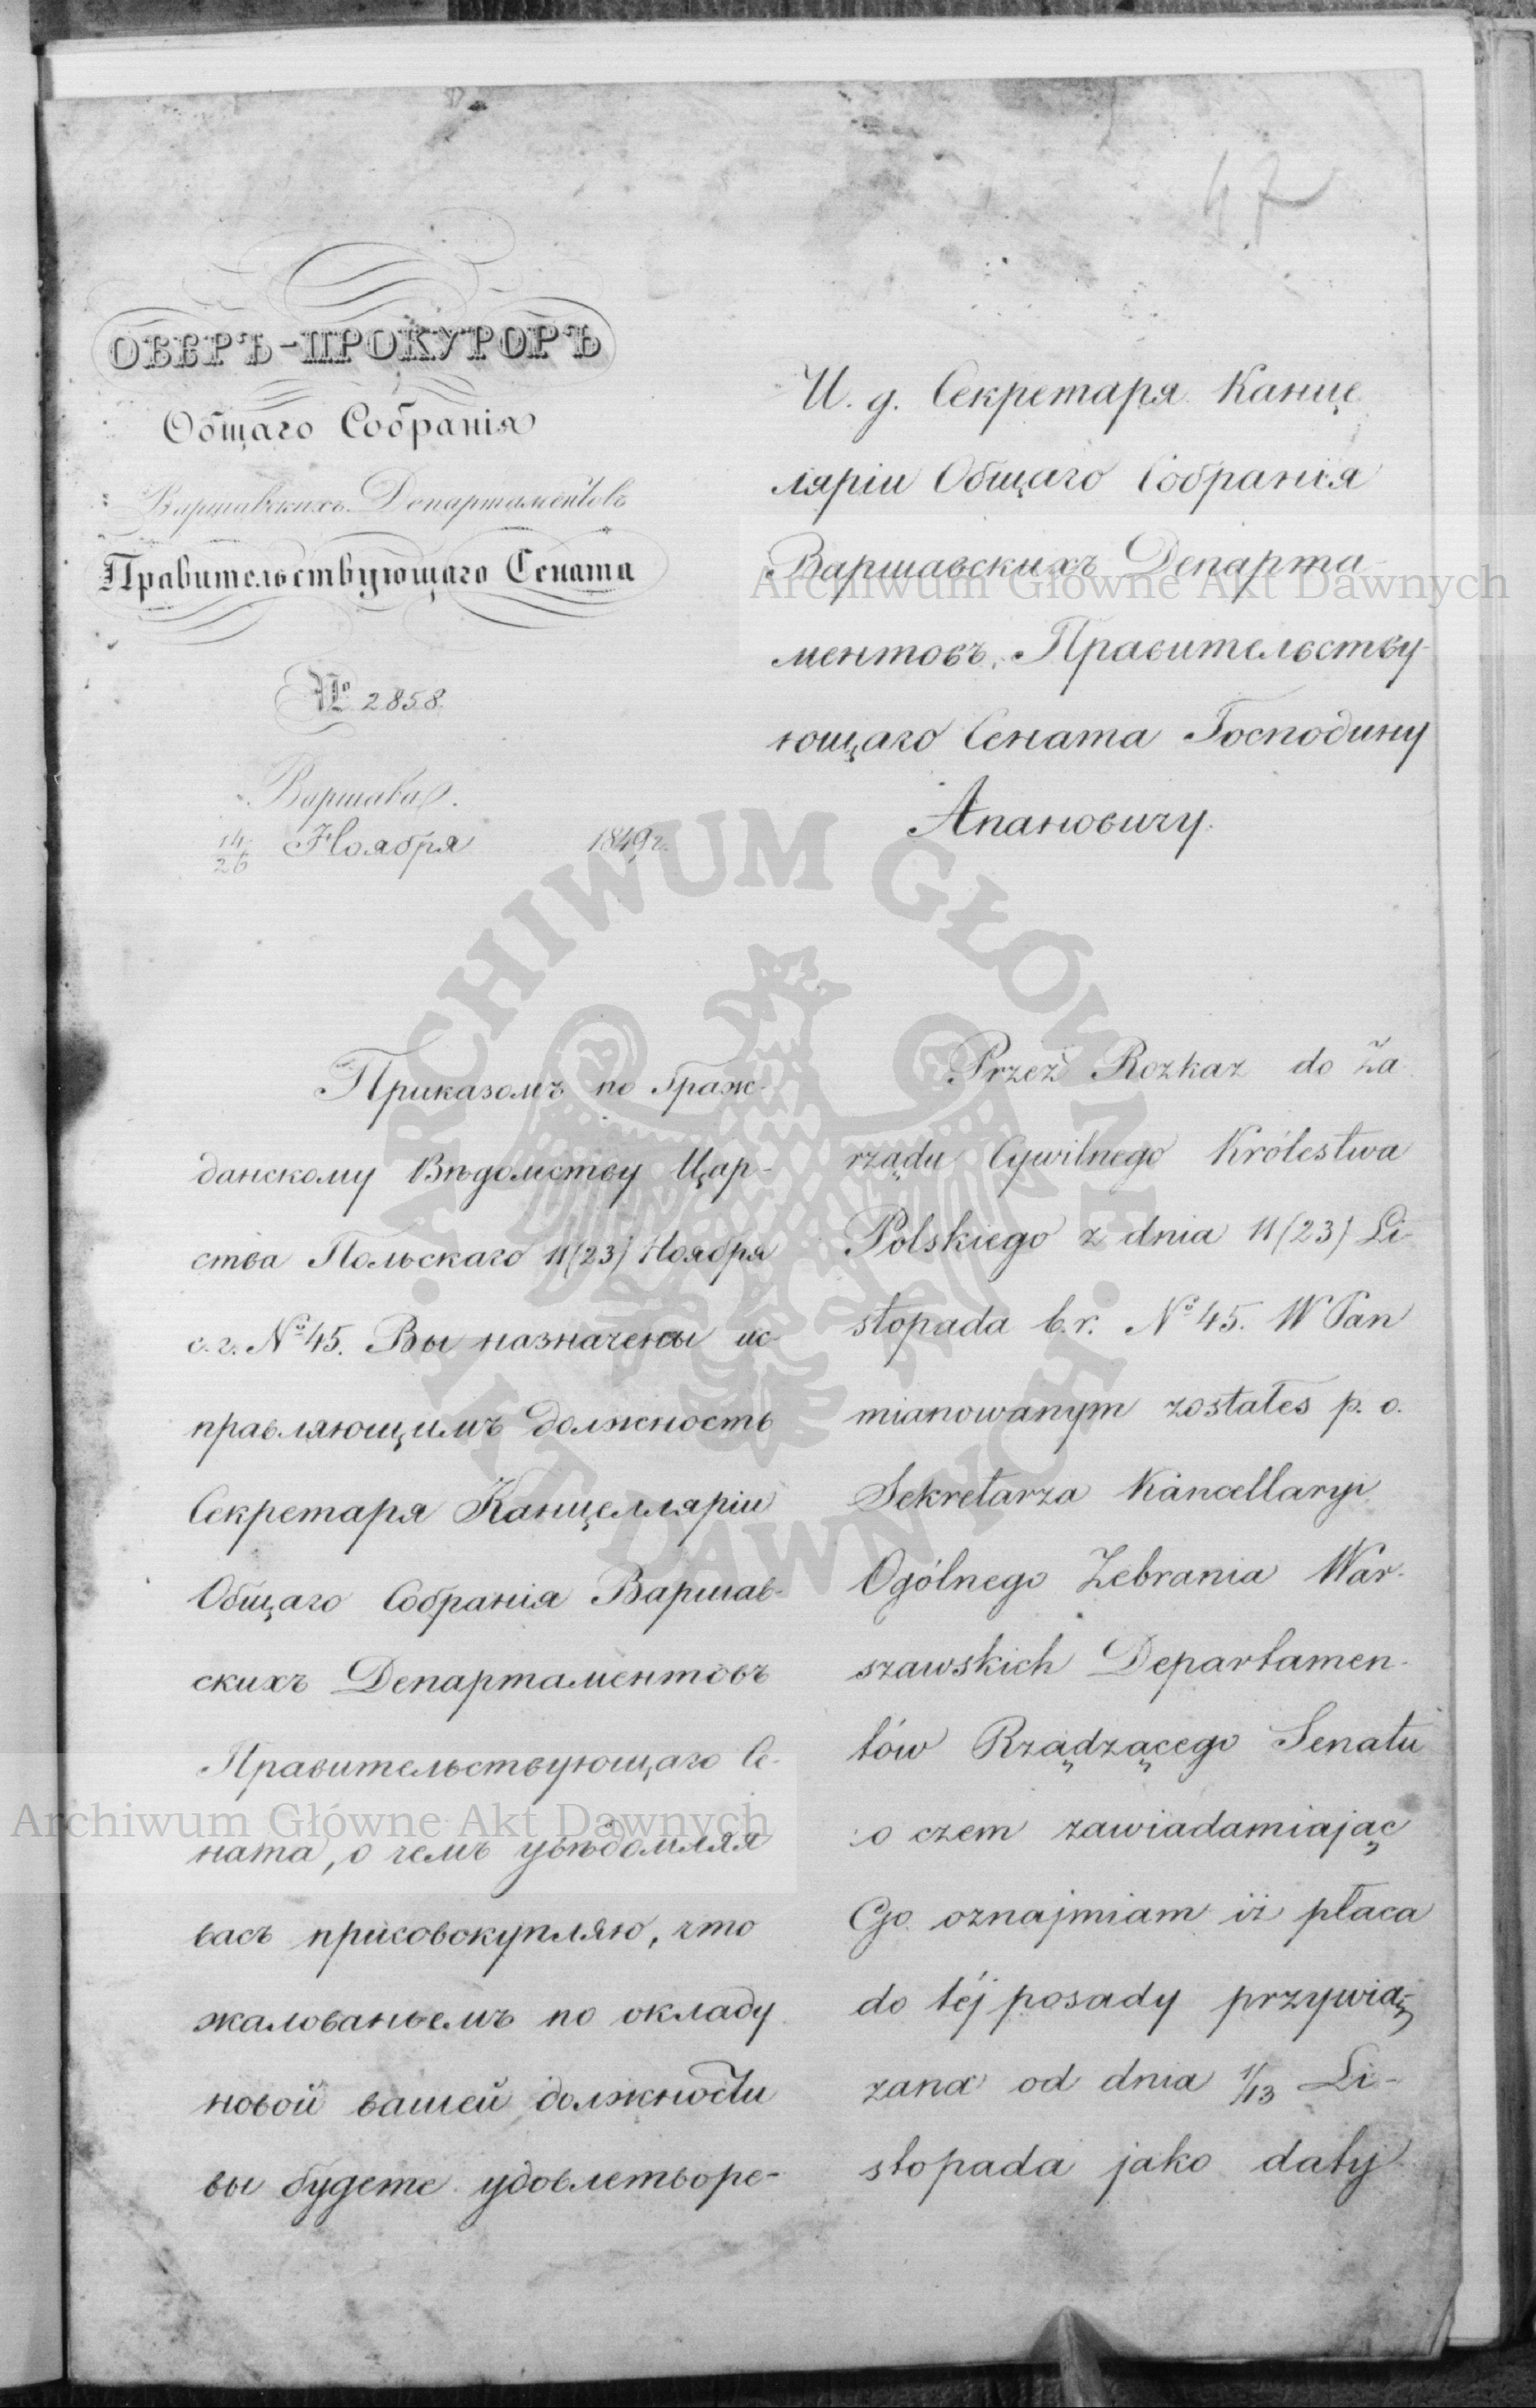 47
ОБЕРЪ-ПРОКУРОРЪ
Общаго Собранія
Варшавскихъ Департаментовъ
Правительствующаго Сената
№ 2858.
Варшава.
14/26 Ноября 1849 г.
И. д. Секретаря Канце
ляріи Общаго Собранія
Варшавскихъ Департа-
ментовъ, Правительству-
ющаго Сената Господину
Апановичу.
Приказомъ по Граж-
данскому Вѣдомству Цар-
ства Польскаго 11/(23) Ноября
с. г. № 45. Вы назначены ис-
правляющимъ должность
Секретаря Канцелляріи
Общаго Собранія Варшав-
скихъ Департаментовъ
Правительствующаго Се-
ната, о чемъ увѣдомляя
васъ присовокупляю, что
жалованьемъ по окладу
новой вашей должности
вы будете удовлетворе-
Przez Rozkaz do Za
rządu Cywilnego Królestwa
Polskiego z dnia 11/(23) Li-
stopada b. r. № 45. W Pan
mianowanym zostałeś p. o.
Sekretarza Kancellaryi
Ogólnego Zebrania War-
szawskich Departamen-
tów Rządzącego Senatu
o czem zawiadamiając
Go oznajmiam iż płaca
do téj posady przywią-
zana od dnia 1/13 Li-
stopada jako daty
Archiwum Główne Akt Dawnych
Archiwum Główne Akt Dawnych
ARCHIWUM GŁÓWNE AKT DAWNYCH